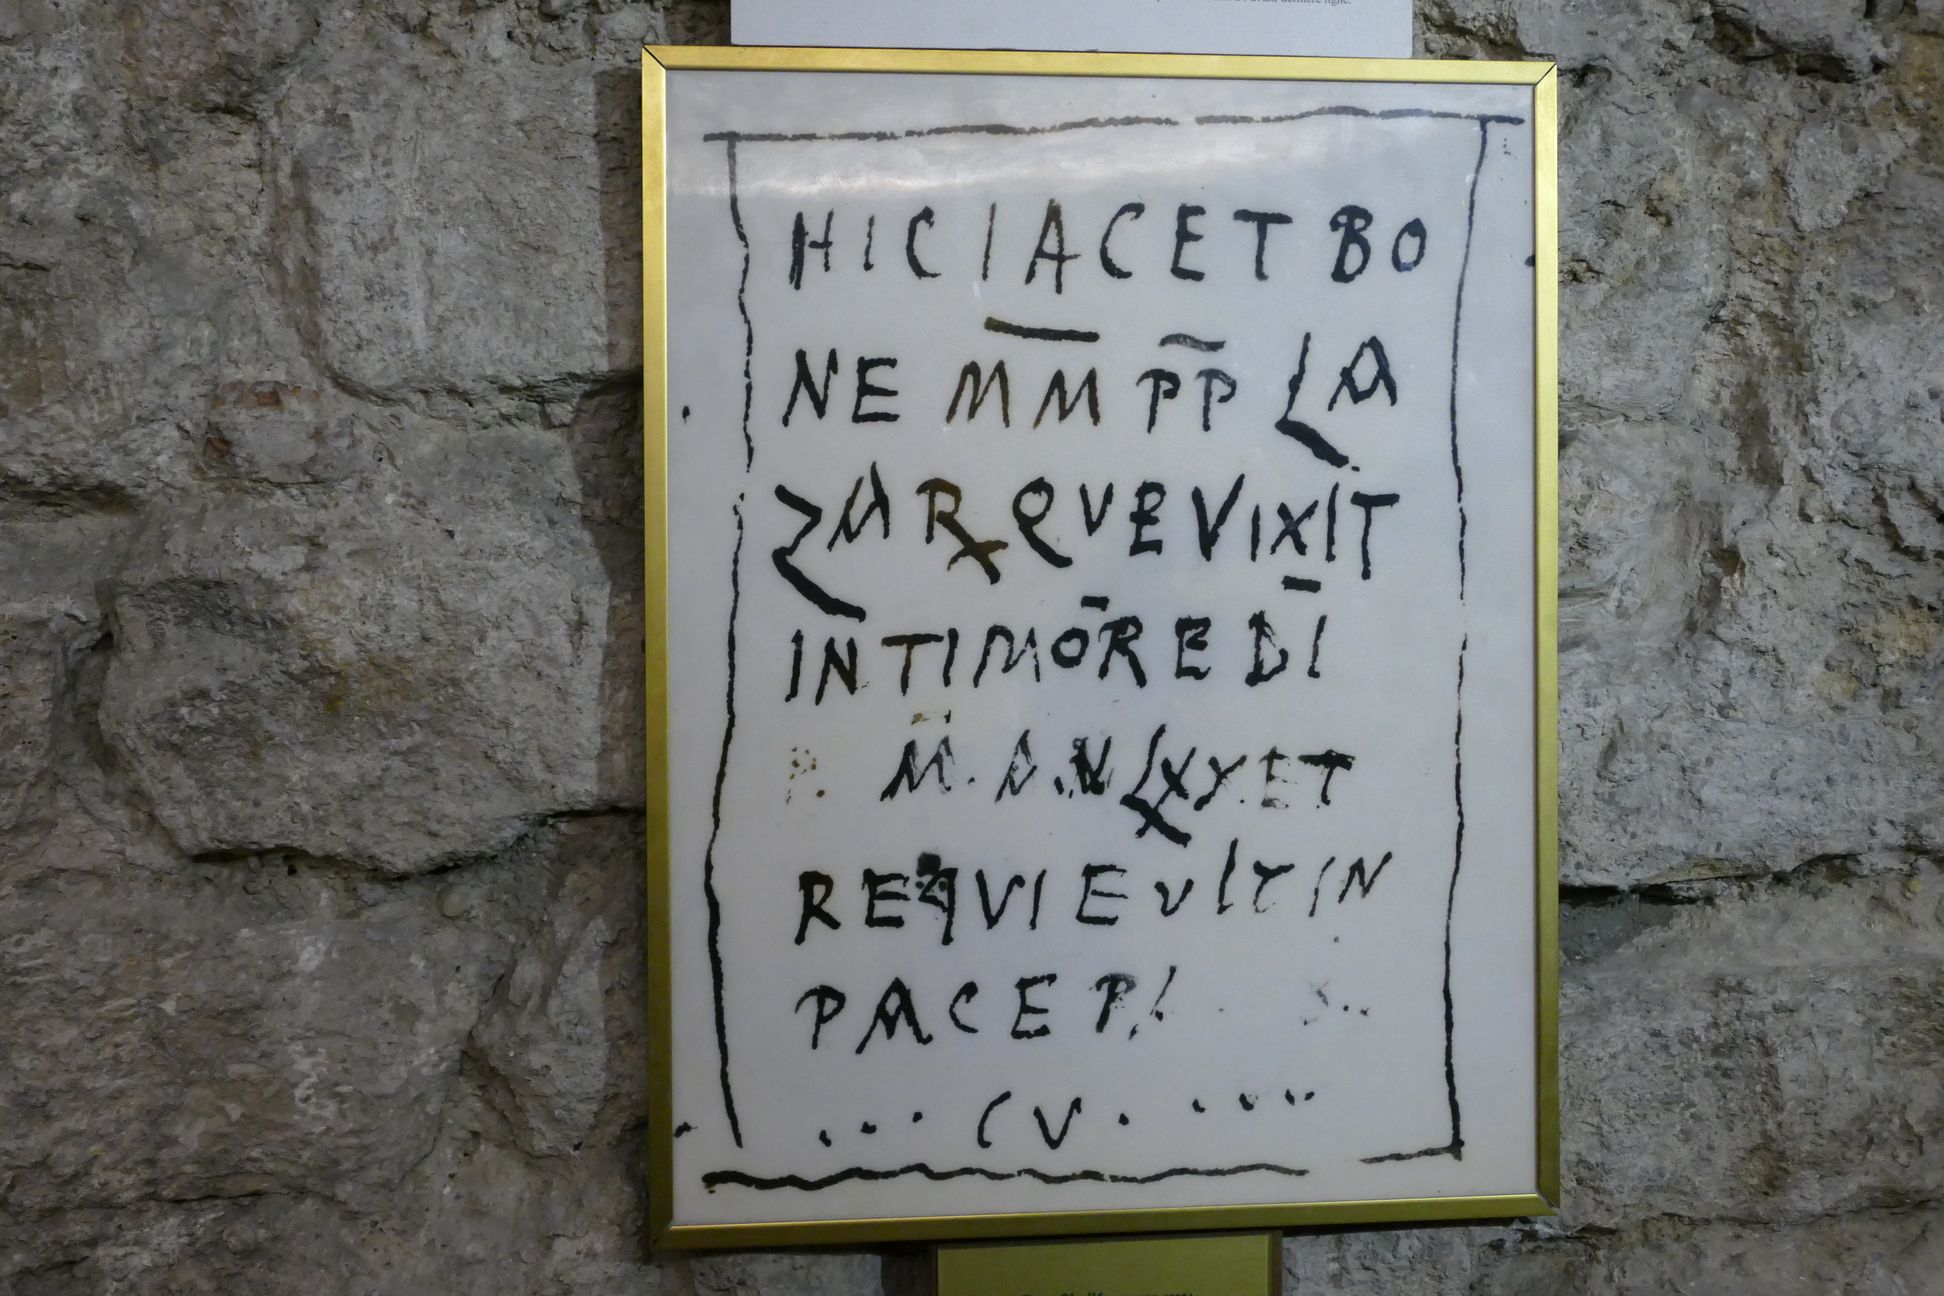 HIC IACET BO
NE MM PP LA
ZAR QUE VIXIT
IN TIMORE DI
M. A.N LXX ET
REQVIEVIT IN
PACE P
... CV. ....